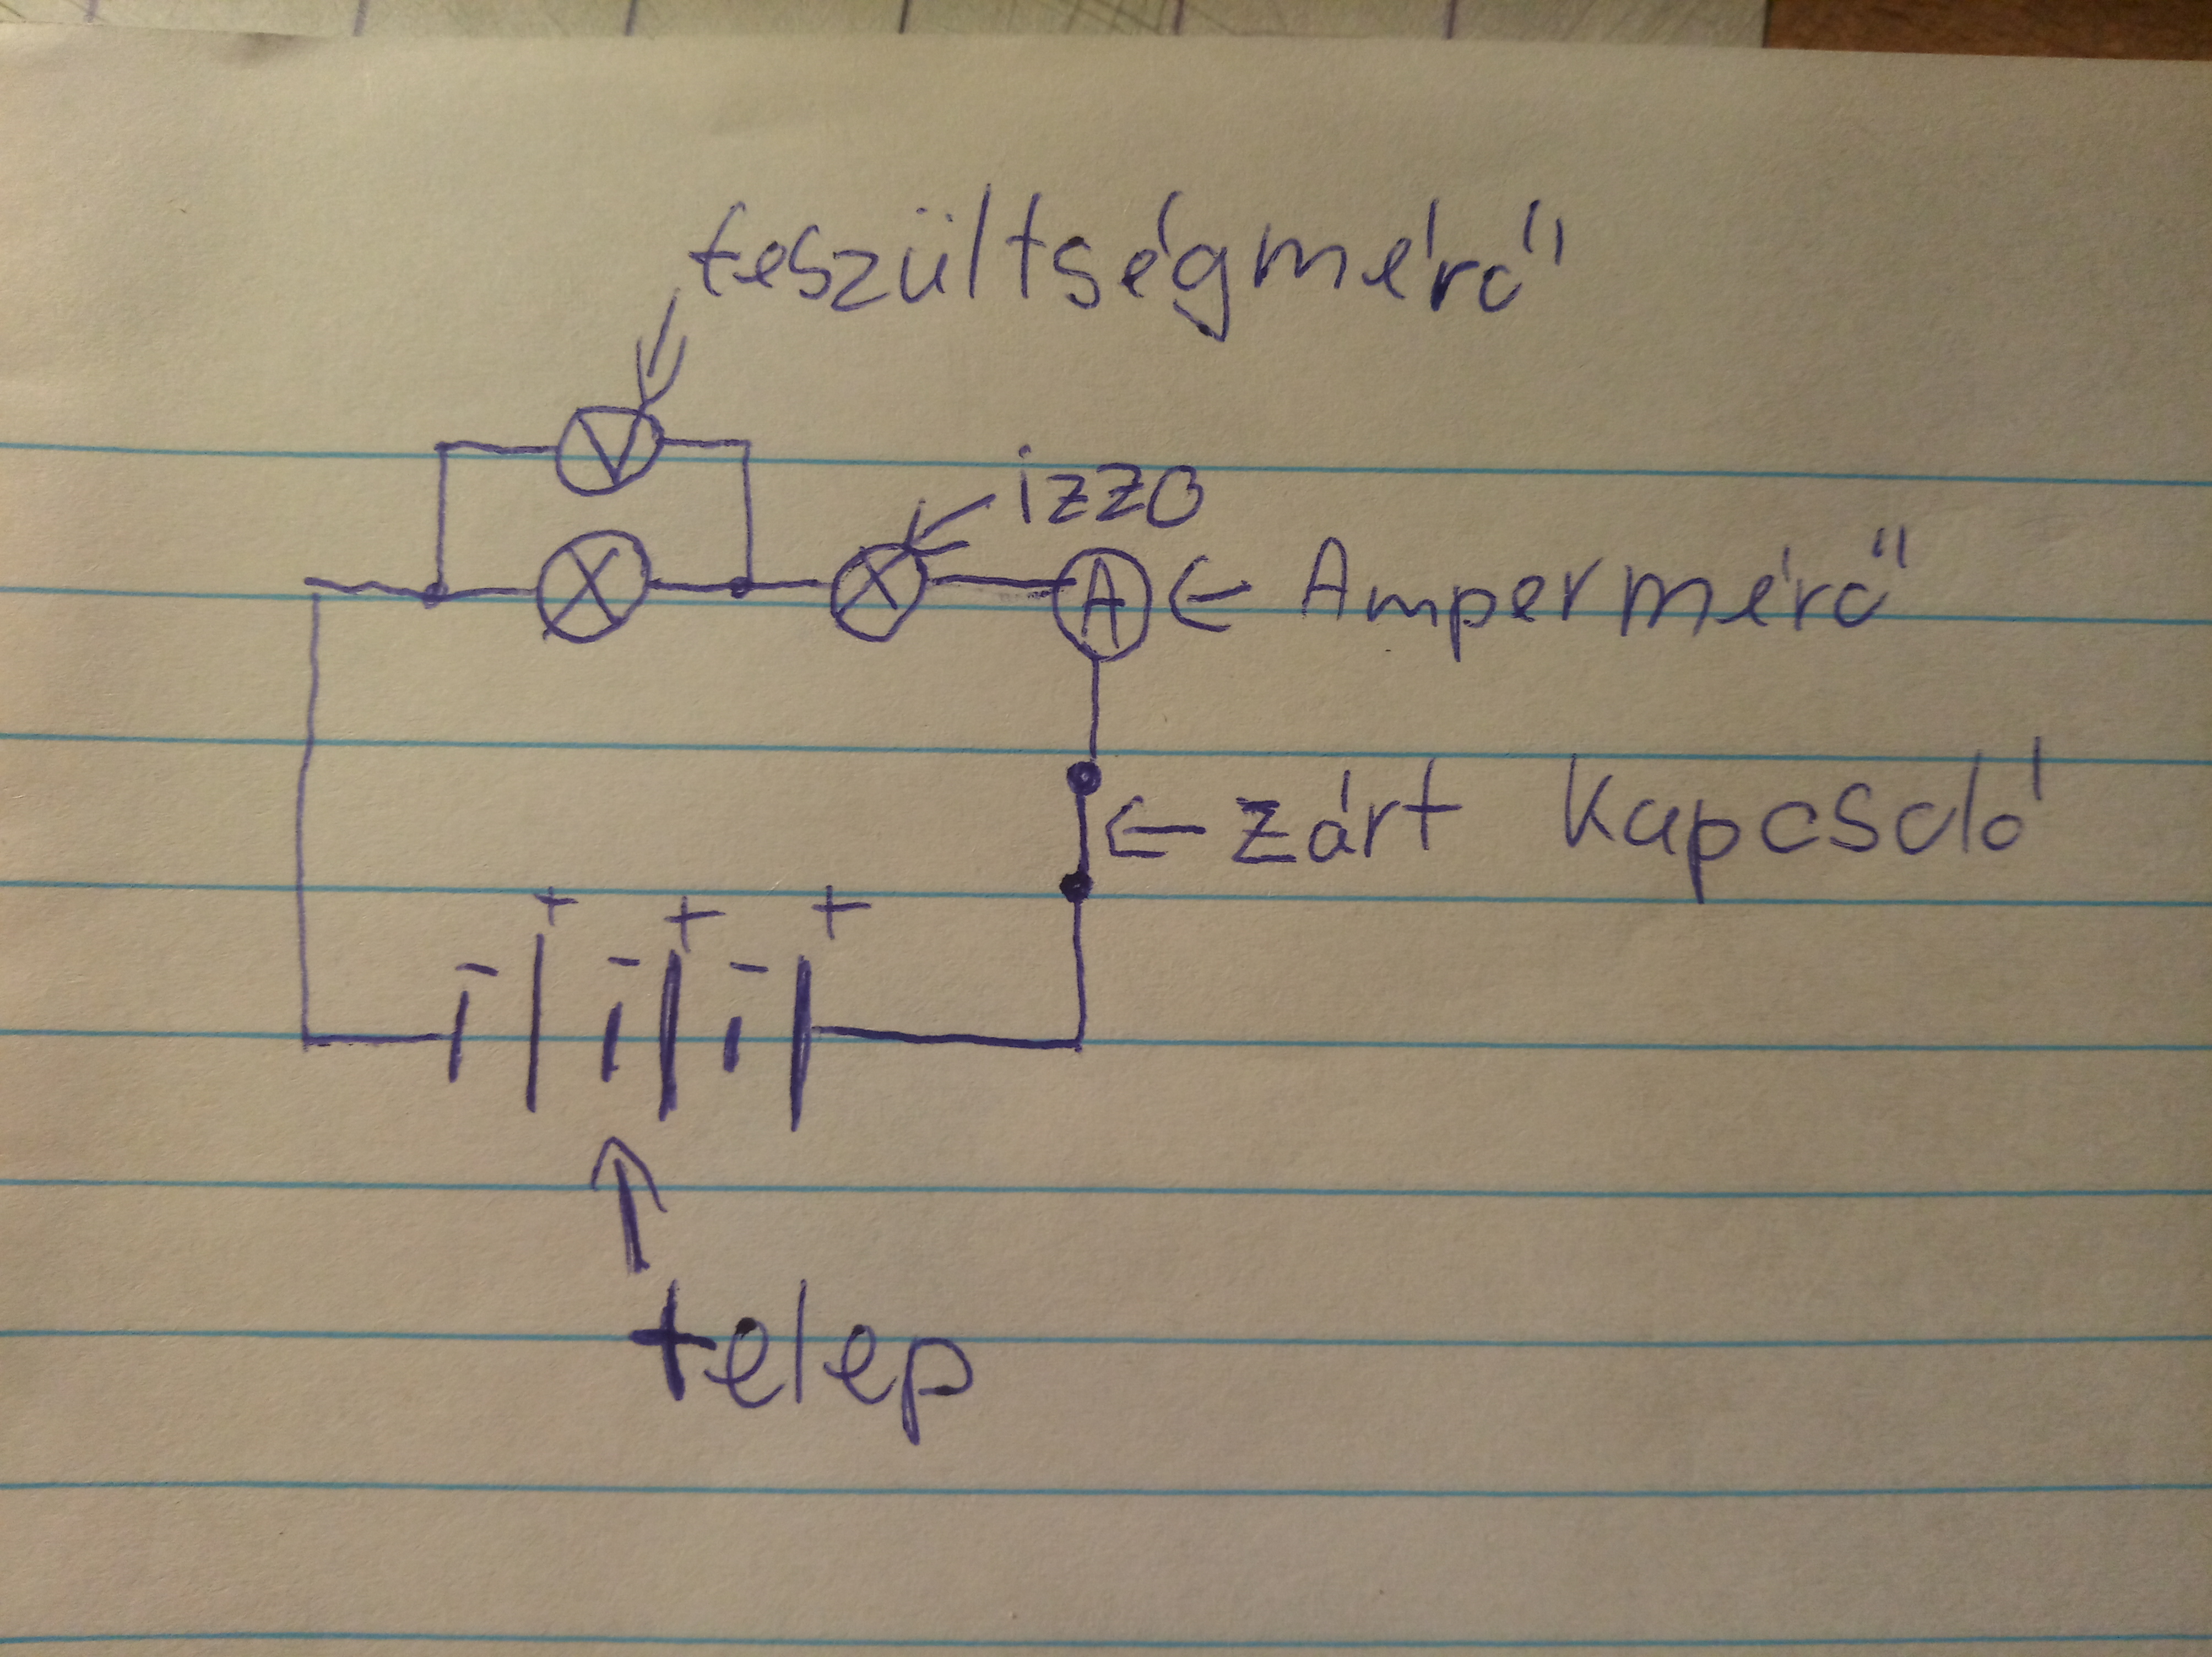 feszültségmérő
V
izzo
A ← Ampermérő
← zárt kapcsoló
+ + +
- - -
telep